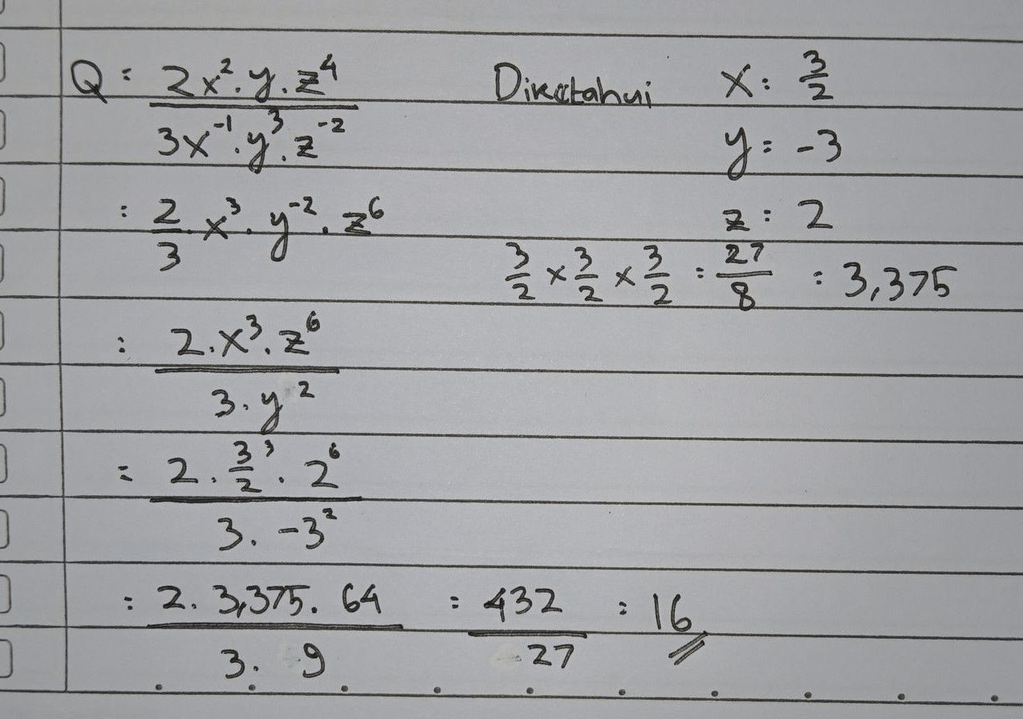 Q = 2x². y. z⁴ / 3x⁻¹. y³. z⁻² Diketahui x = 3/2
y = -3
= 2/3 . x³. y⁻². z⁶ z = 2
3/2 × 3/2 × 3/2 = 27/8 = 3,375
= 2. x³. z⁶ / 3. y²
= 2. 3/2³. 2⁶ / 3. -3²
= 2. 3,375. 64 / 3. 9 = 432 / 27 = 16